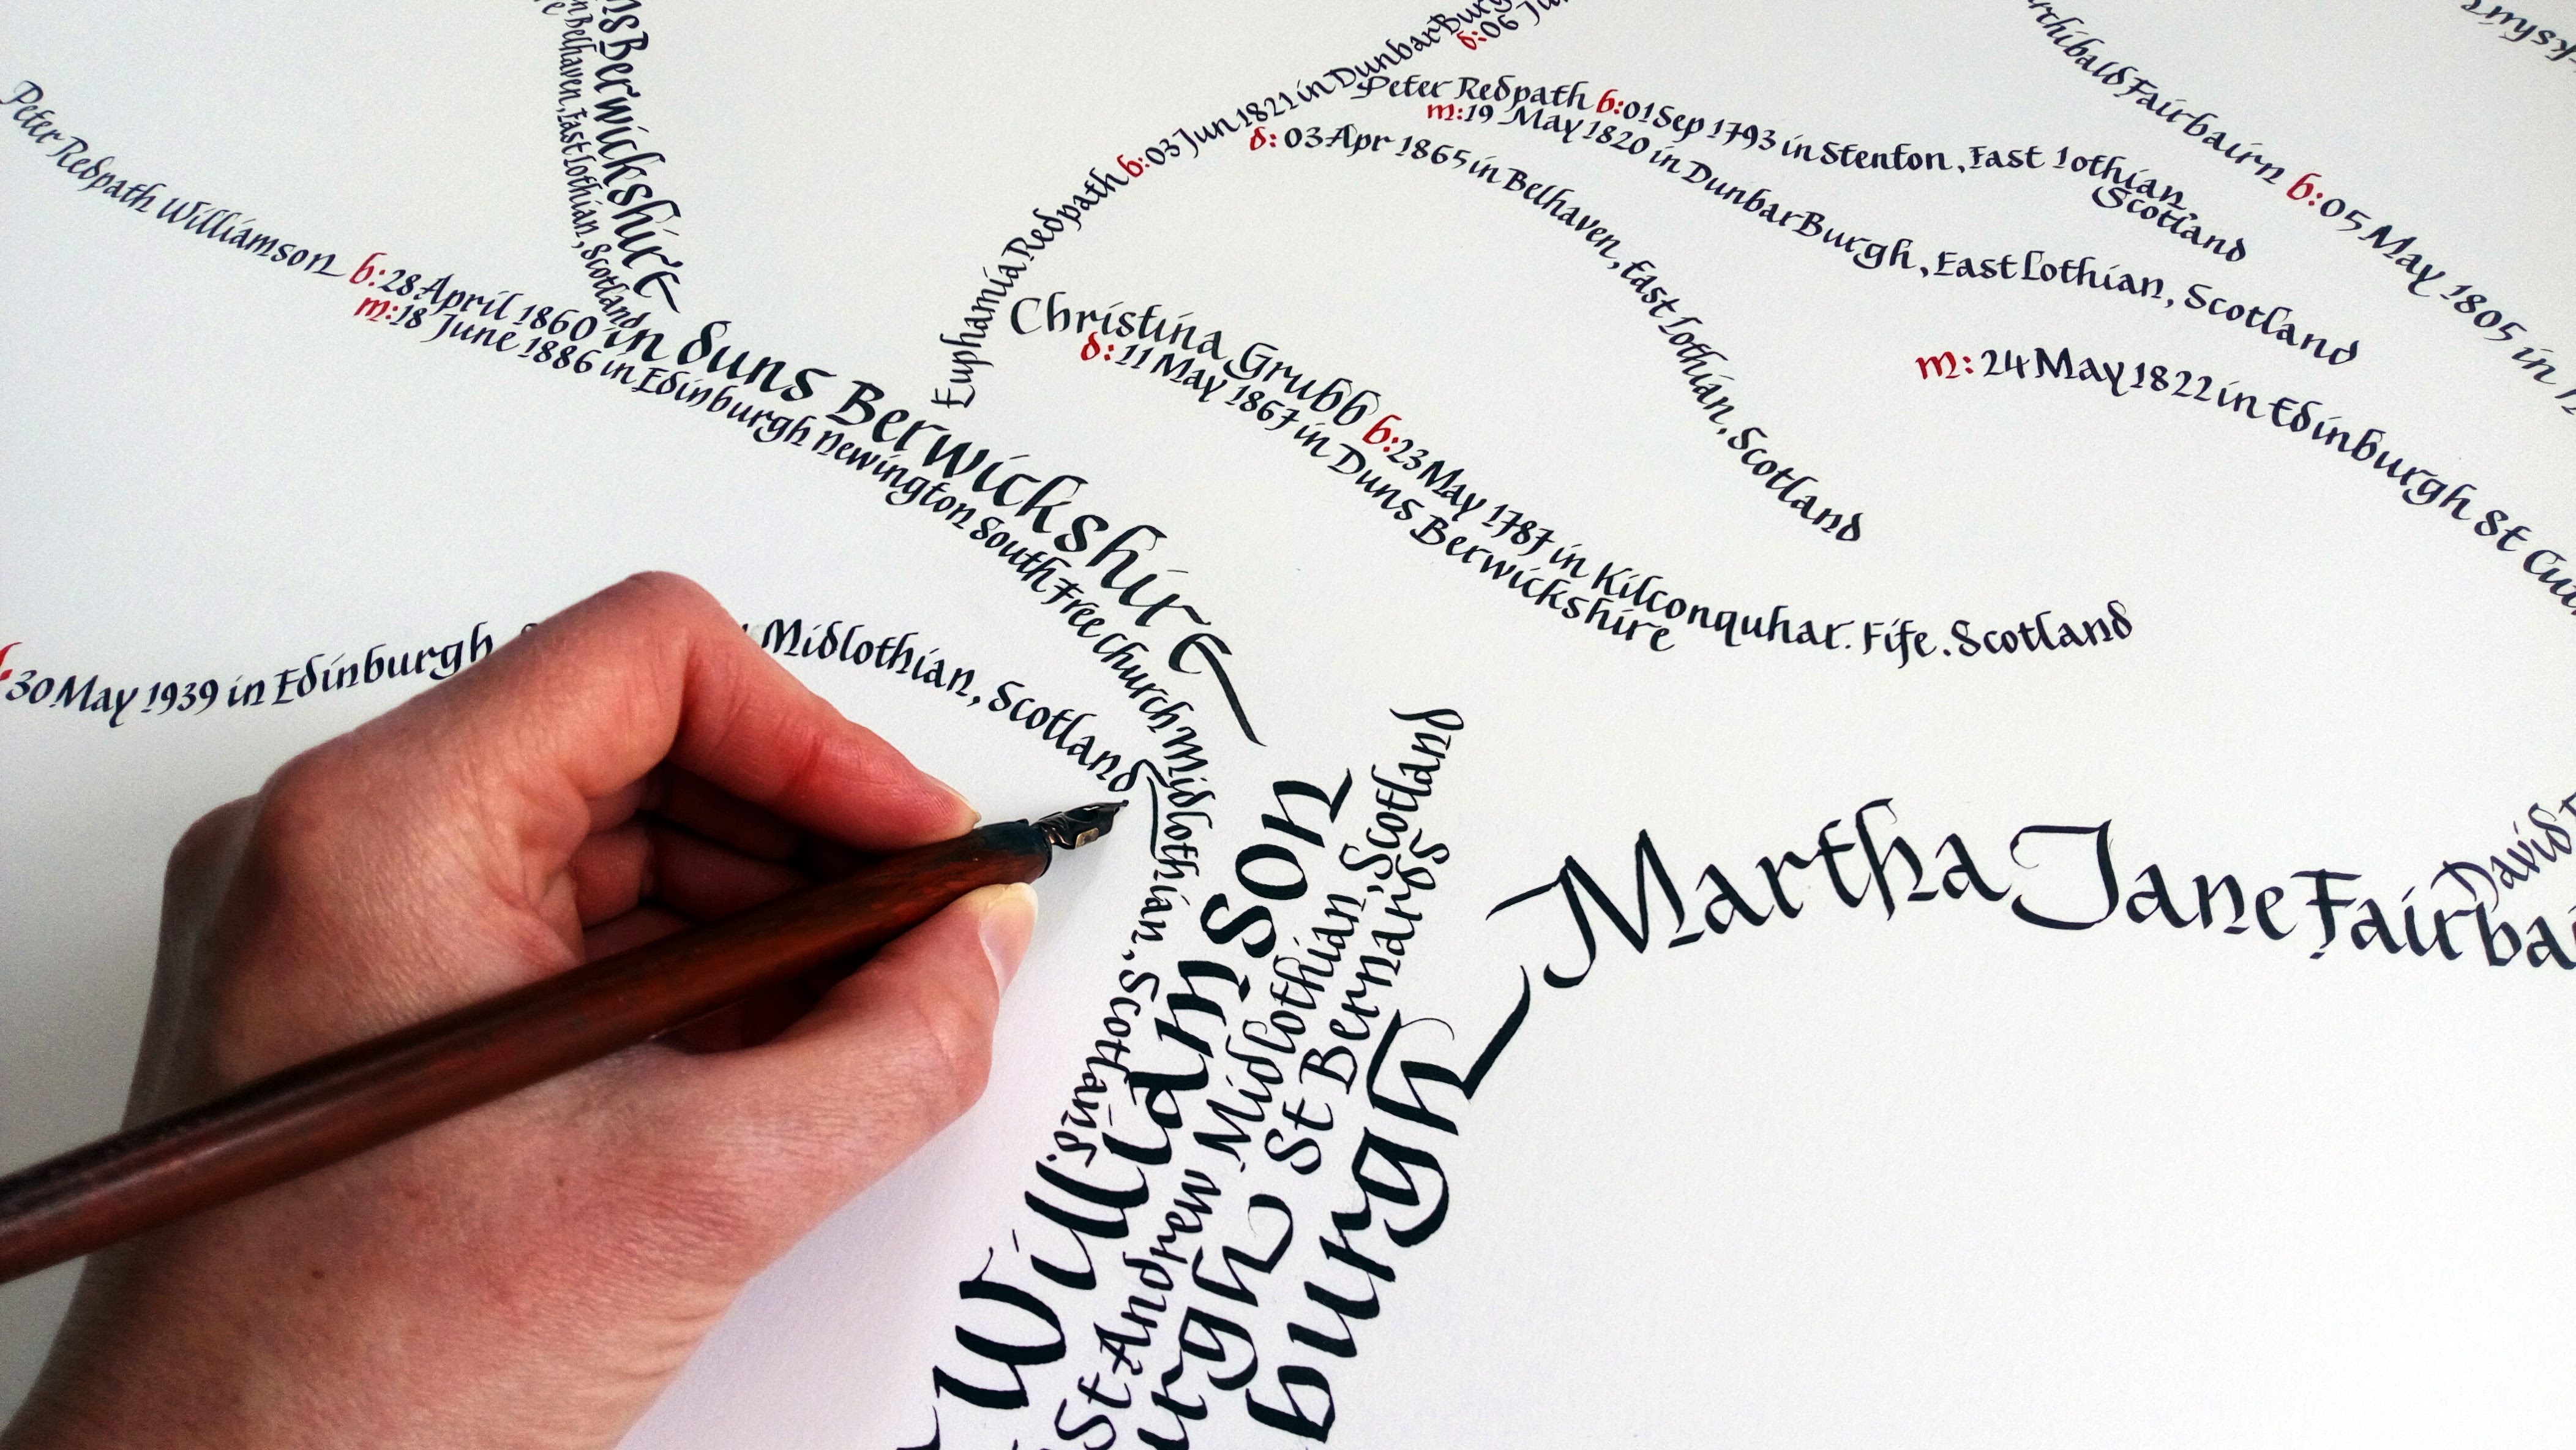 Berwickshire
n Belhaven, East Lothian, Scotland
Peter Redpath Williamson b:28 April 1860 in Duns Berwickshire
m:18 June 1886 in Edinburgh Newington South Free Church Midlothian, Scotland.
30 May 1939 in Edinburgh Midlothian, Scotland
Euphamia Redpath b:03 Jun 1821 in Dunbar Burg
d:06
Peter Redpath b:01 Sep 1793 in Stenton, East Lothian, Scotland
m:19 May 1820 in Dunbar Burgh, East Lothian, Scotland
d: 03 Apr 1865 in Belhaven, East Lothian, Scotland
Christina Grubb b:23 May 1787 in Kilconquhar. Fife. Scotland
d:11 May 1867 in Duns Berwickshire
rthibald Fairbairn b:05 May 1805 in
m: 24 May 1822 in Edinburgh St Cu
Williamson
St Andrew Midlothian, Scotland
urgh St Bernards
burgh
Martha Jane Fairbai
David